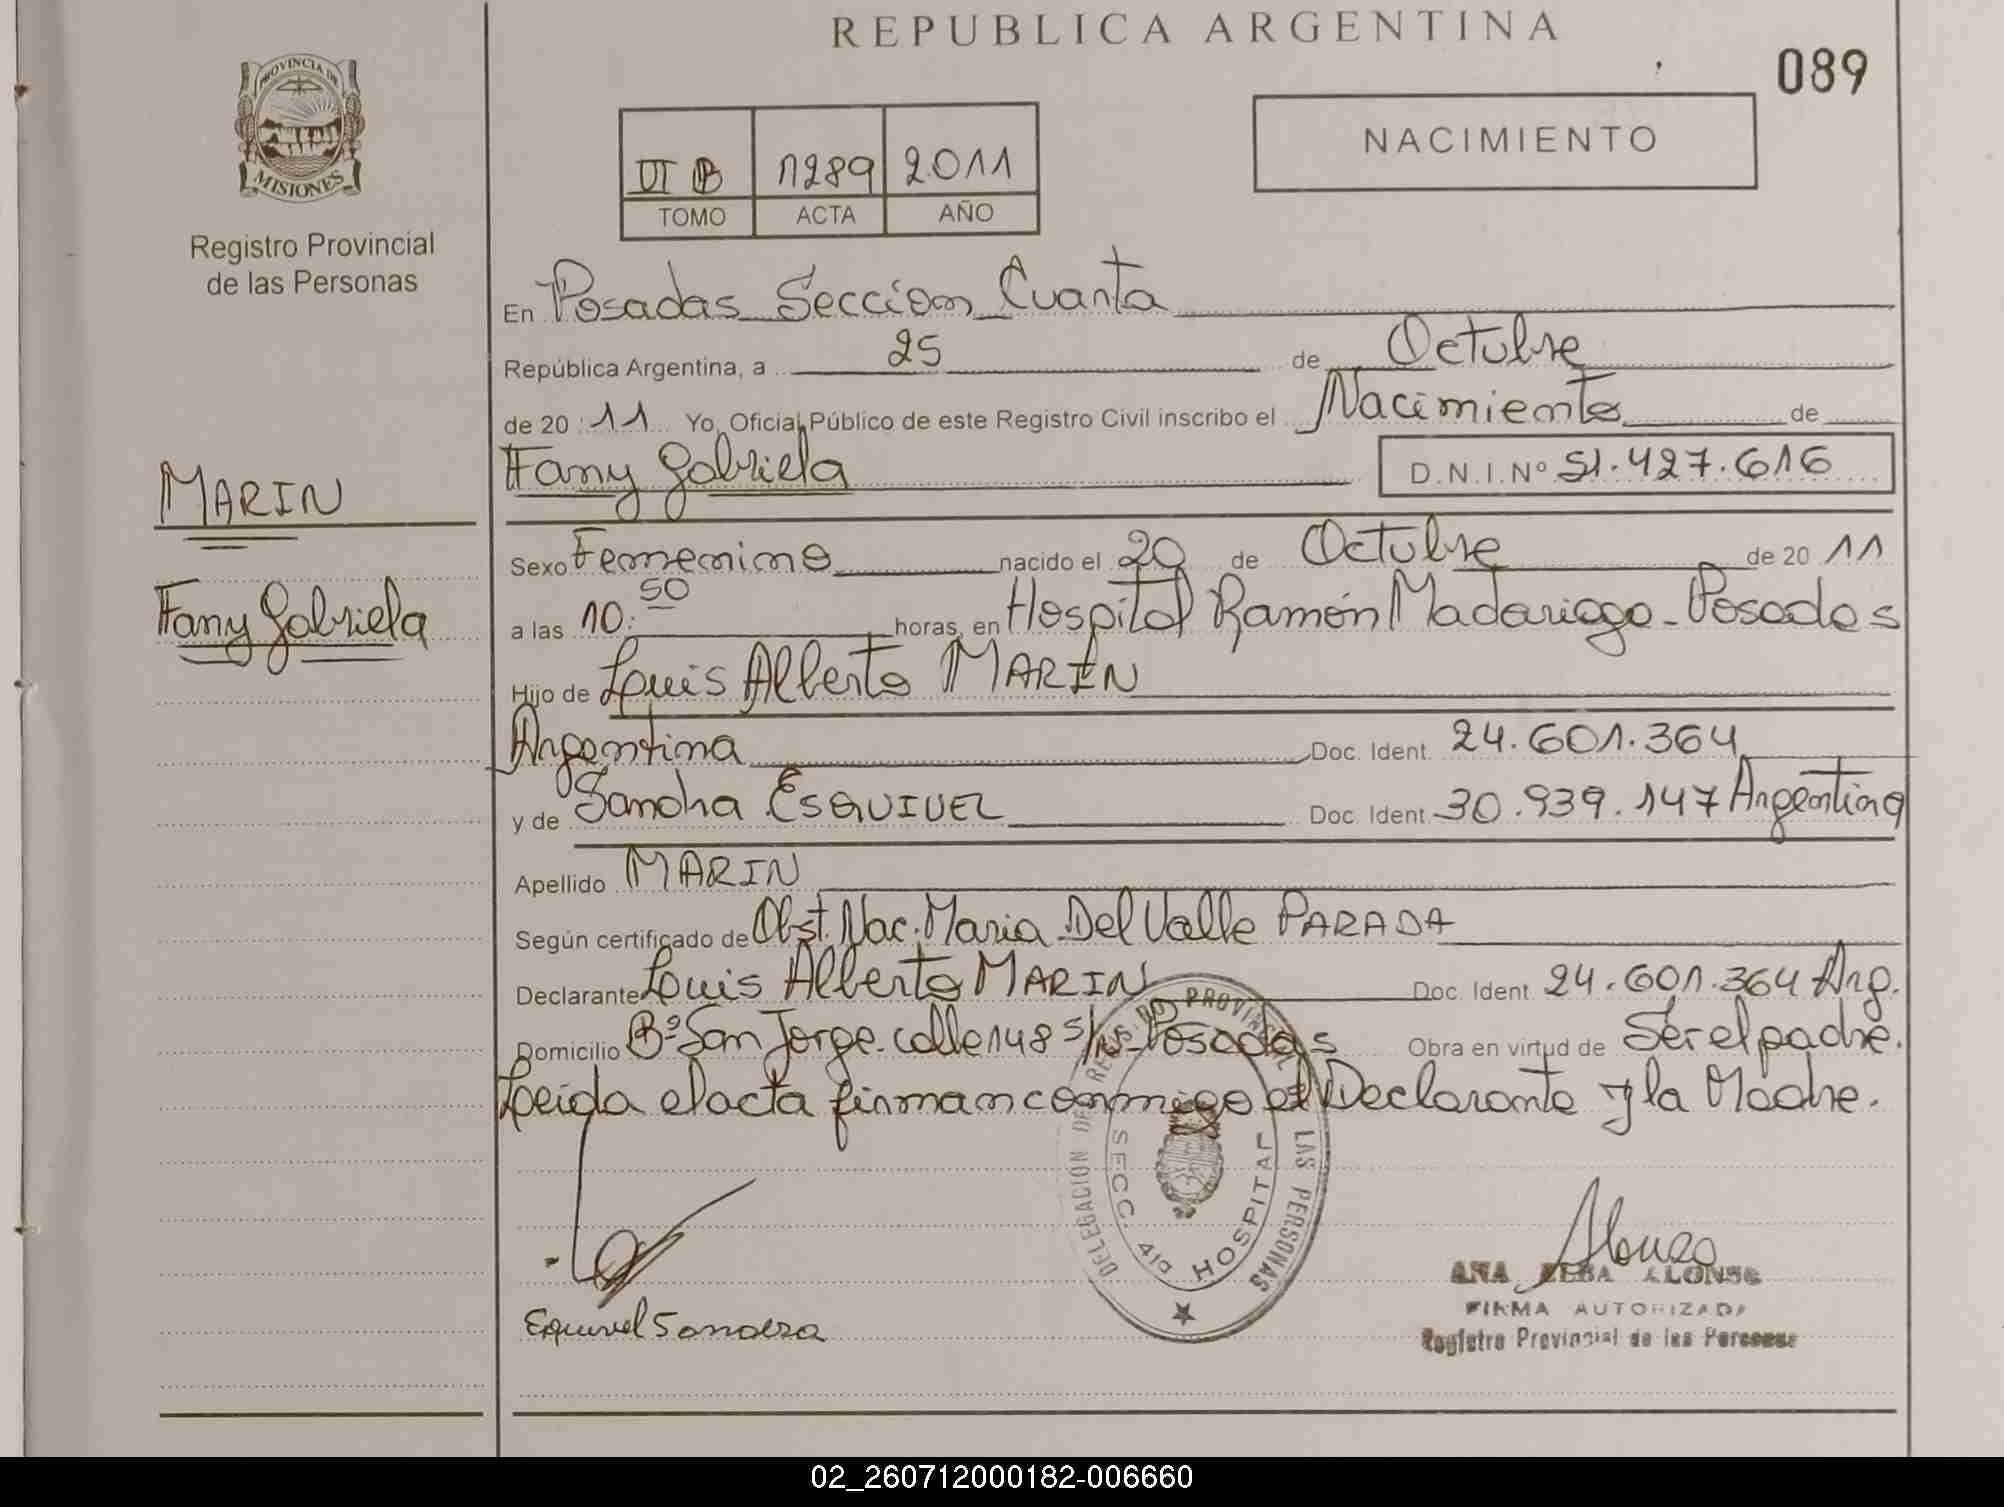 REPUBLICA ARGENTINA
089
PROVINCIA DE
MISIONES
Registro Provincial
de las Personas
1289 2011
TOMO ACTA AÑO
NACIMIENTO
En Posadas Sección Cuarta
República Argentina, a 25 de Octubre
de 20 11 Yo, Oficial Público de este Registro Civil inscribo el Nacimiento de
Fany Gabriela D.N.I.Nº 51.427.616
MARIN
Fany Gabriela
Sexo Femenino nacido el 20 de Octubre de 20 11
a las 10:50 horas, en Hospital Ramón Madariaga - Posadas
Hijo de Luis Alberto MARÍN
Argentina Doc. Ident. 24.601.364
y de Sandra ESQUIVEL Doc. Ident. 30.939.147 Argentina
Apellido MARIN
Según certificado de Obst. Nac. Maria Del Valle PARADA
Declarante Luis Alberto MARIN Doc. Ident 24.601.364 Arg.
Domicilio Bº San Jorge - calle 148 s/n - Posadas Obra en virtud de Ser el padre.
Leída el acta firman conmigo el Declarante y la Madre.
DELEGACION DEL REGISTRO PROVINCIAL DE LAS PERSONAS
SECC. 4ta HOSPITAL
Alonso
ANA ELBA ALONSO
FIRMA AUTORIZADA
Registro Provincial de las Personas
Esquivel Sandra
02_260712000182-006660